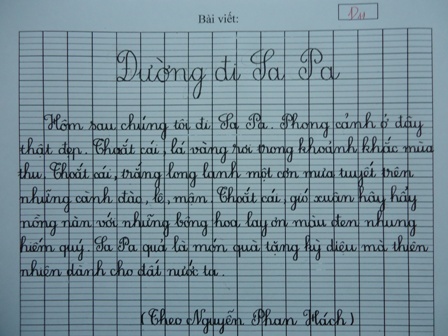 Bài viết:
Đường đi Sa Pa
Hôm sau chúng tôi đi Sa Pa. Phong cảnh ở đây
thật đẹp. Thoắt cái, lá vàng rơi trong khoảnh khắc mùa
thu. Thoắt cái, trắng long lanh một cơn mưa tuyết trên
những cành đào, lê, mận. Thoắt cái, gió xuân hây hẩy
nồng nàn với những bông hoa lay ơn màu đen nhung
hiếm quý. Sa Pa quả là món quà tặng kỳ diệu mà thiên
nhiên dành cho đất nước ta.
(Theo Nguyễn Phan Hách)